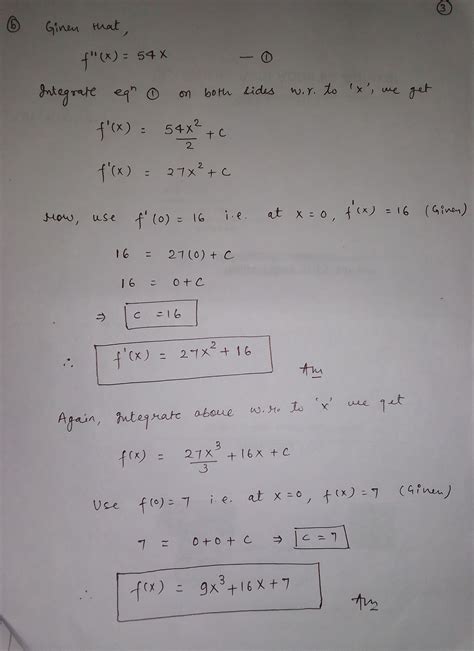 ③
⑥ Given that,
f''(x) = 54x — ①
Integrate eqⁿ ① on both sides w.r. to 'x', we get
f'(x) = 54x²/2 + c
f'(x) = 27x² + c
Now, use f'(0) = 16 i.e. at x = 0, f'(x) = 16 (Given)
16 = 27(0) + c
16 = 0+c
⇒ c = 16
∴ f'(x) = 27x² + 16
Ans
Again, Integrate above w.r. to 'x' we get
f(x) = 27x³/3 + 16x + c
Use f(0) = 7 i.e. at x = 0, f(x) = 7 (Given)
7 = 0+0+c ⇒ c = 7
∴ f(x) = 9x³+16x+7
Ans